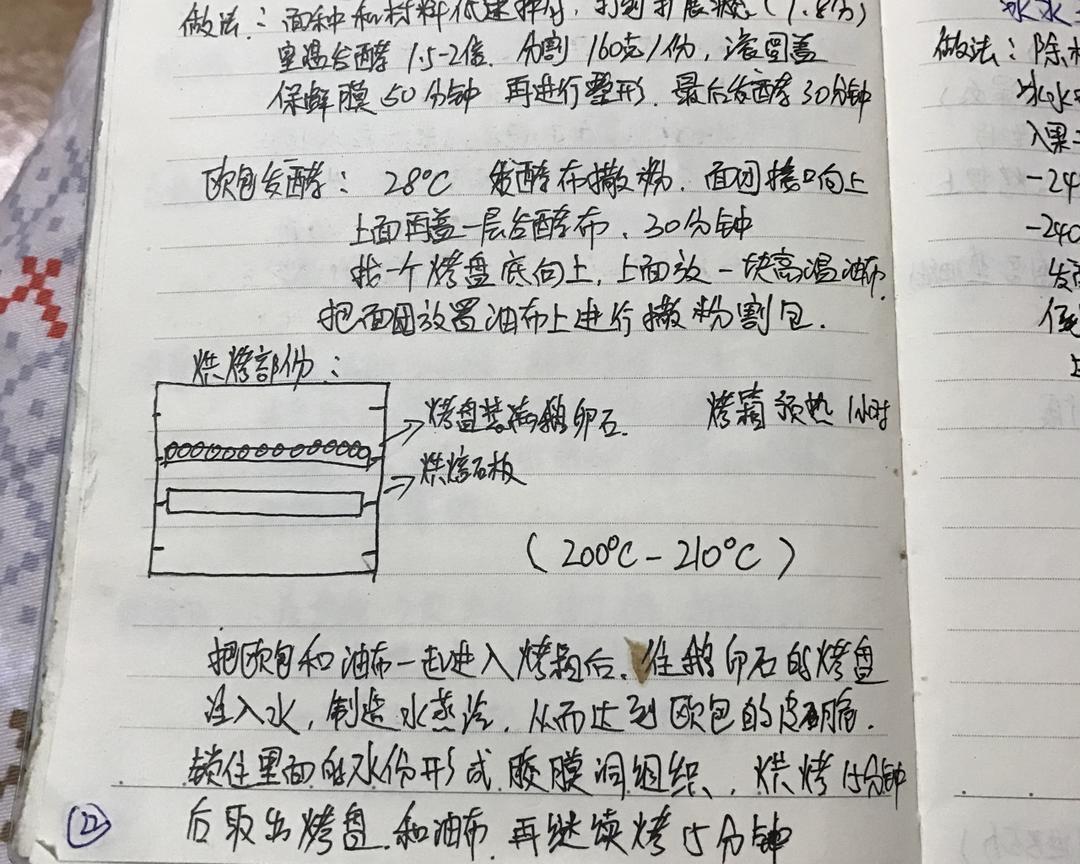 做法：面种和材料低速拌匀，打到扩展状态(1.8分)
室温发酵1.5-2倍. 分割160克/份，滚圆盖
保鲜膜50分钟 再进行整形. 最后发酵30分钟
欧包发酵：28℃ 发酵布撒粉. 面团接口向上
上面再盖一层发酵布、30分钟
找一个烤盘底向上，上面放一块高温油布.
把面团放置油布上进行撒粉割包.
烘烤部份：
烤盘装满鹅卵石. 烤箱预热1小时
烘焙石板
(200℃-210℃)
把欧包和油布一起进入烤箱后. 往鹅卵石的烤盘
注入水，制造水蒸汽. 从而达到欧包的皮酥脆.
锁住里面的水份形成胶膜洞组织、烘烤15分钟
后取出烤盘.和油布.再继续烤15分钟
22
冰水
做法：除
冰水
入果
-24
-240
发